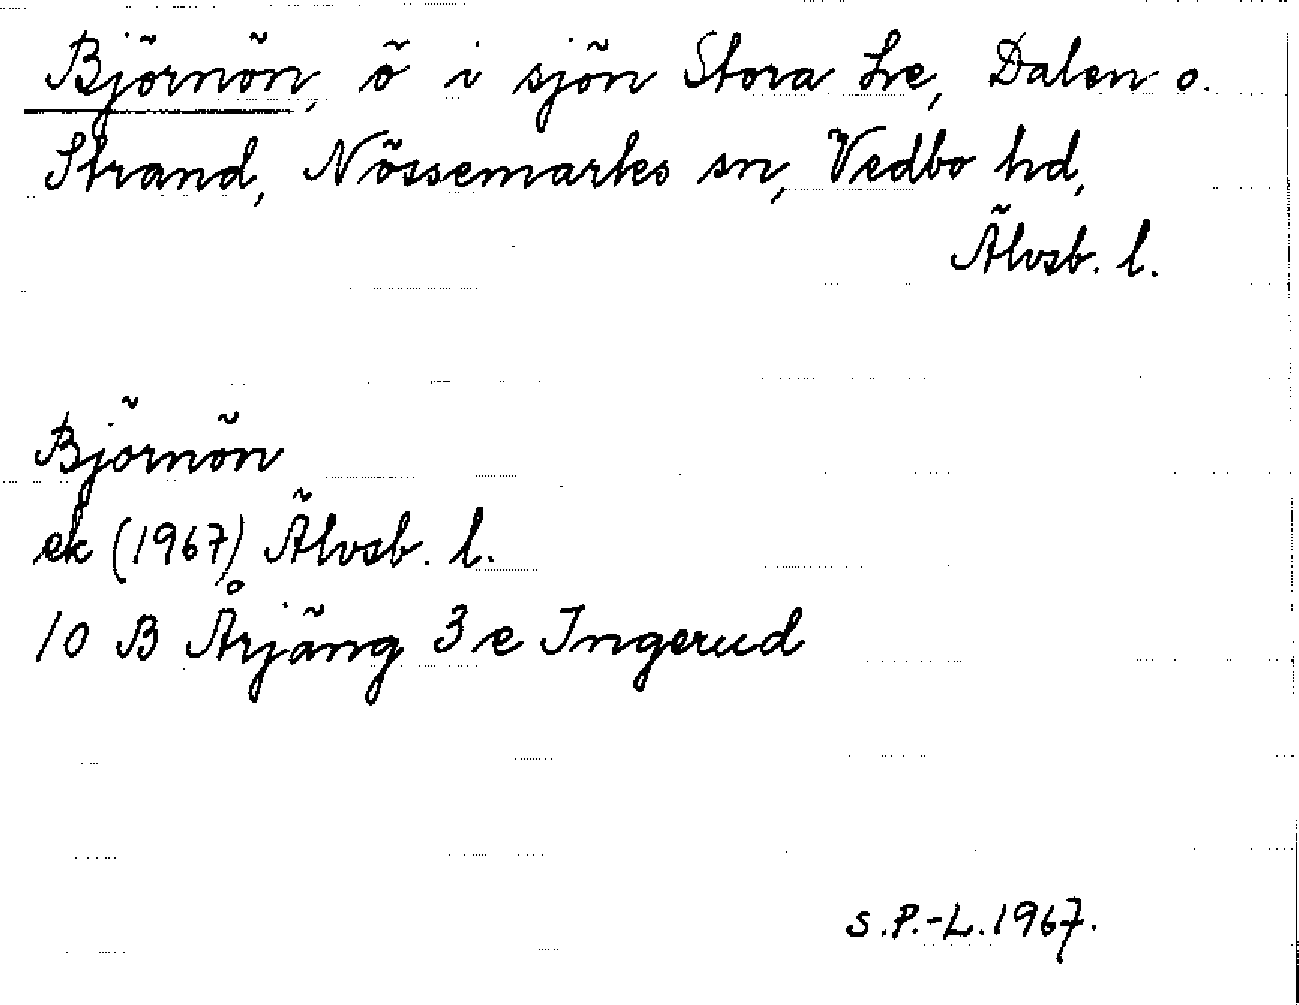 Björnön, ö i sjön Stora Le, Dalen o.
Strand, Nössemarks sn, Vedbo hd,
Älvsb. l.
Björnön
ek (1967) Älvsb. l.
10 B Årjäng 3 e Ingerud
S.P.-L. 1967.